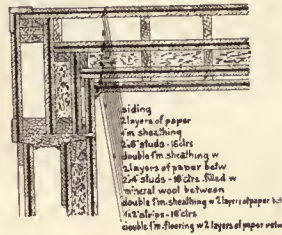 siding
2 layers of paper
t'm. sheathing
2x6" studs - 16"ctrs
double t'm. sheathing w
2 layers of paper betw
2x4" studs - 16"ctrs. filled w
mineral wool between
double t'm. sheathing w 2 layers of paper bet
1x2" strips - 16"ctrs
double t'm. flooring w 2 layers of paper betw